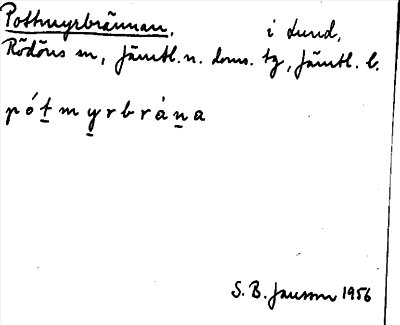 Pottmyrbrännan, i Lund,
Rödöns sn, Jämtl. n. doms. tg, Jämtl. l.
pótmyrbrána
S. B. Jansson 1956